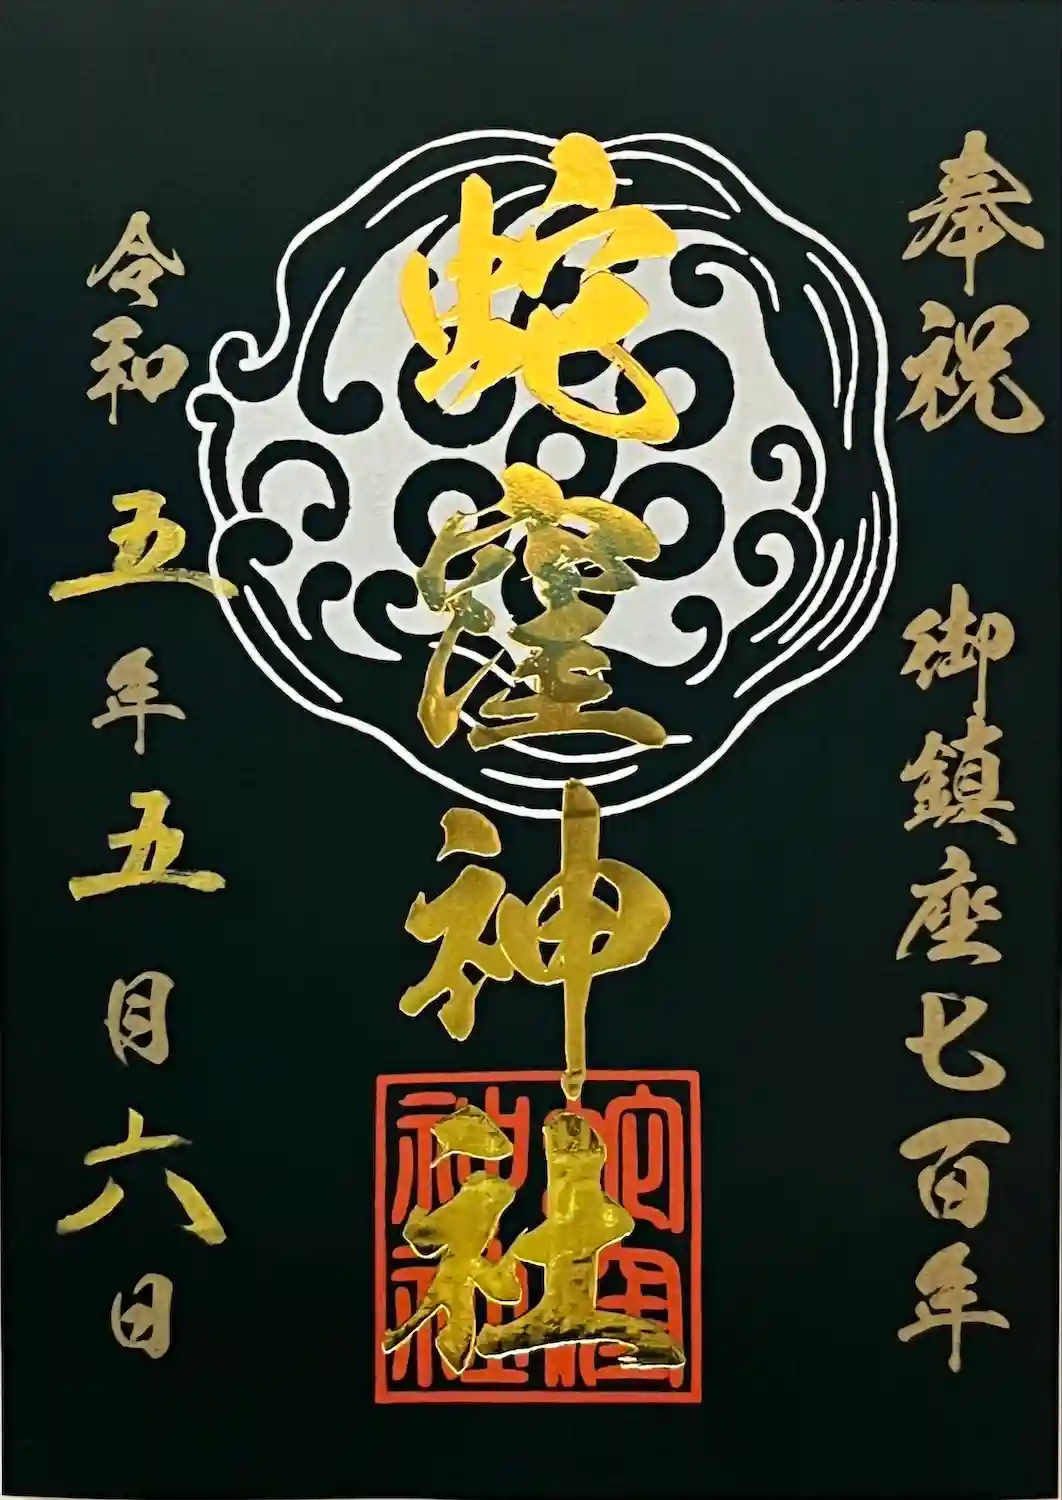 奉祝 御鎮座七百年
蛇窪神社
令和五年五月六日